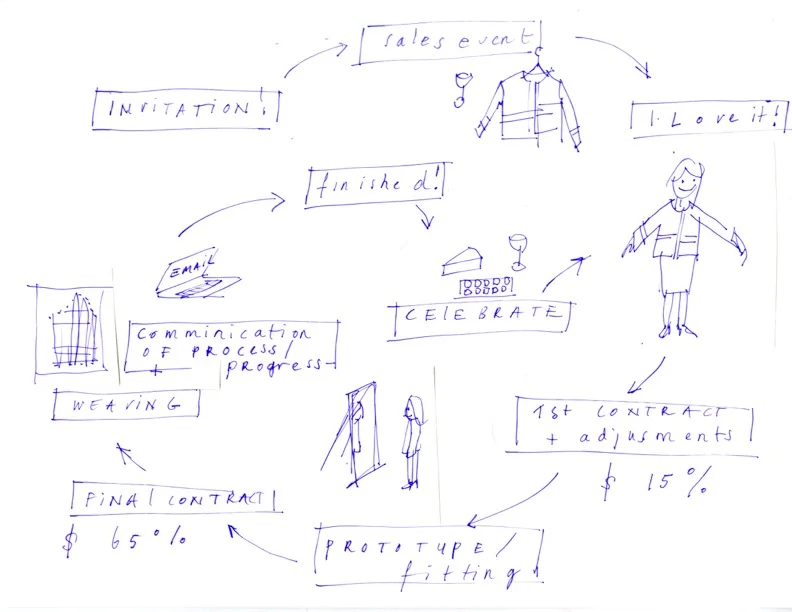 INVITATION!
sales event
I Love it!
1st CONTRACT
+ adjusments
$ 15%
PROTOTYPE/
fitting
FINAL CONTRACT
$ 65%
WEAVING
+
COMMINICATION
OF PROCESS/
progress
EMAIL
finished!
CELEBRATE